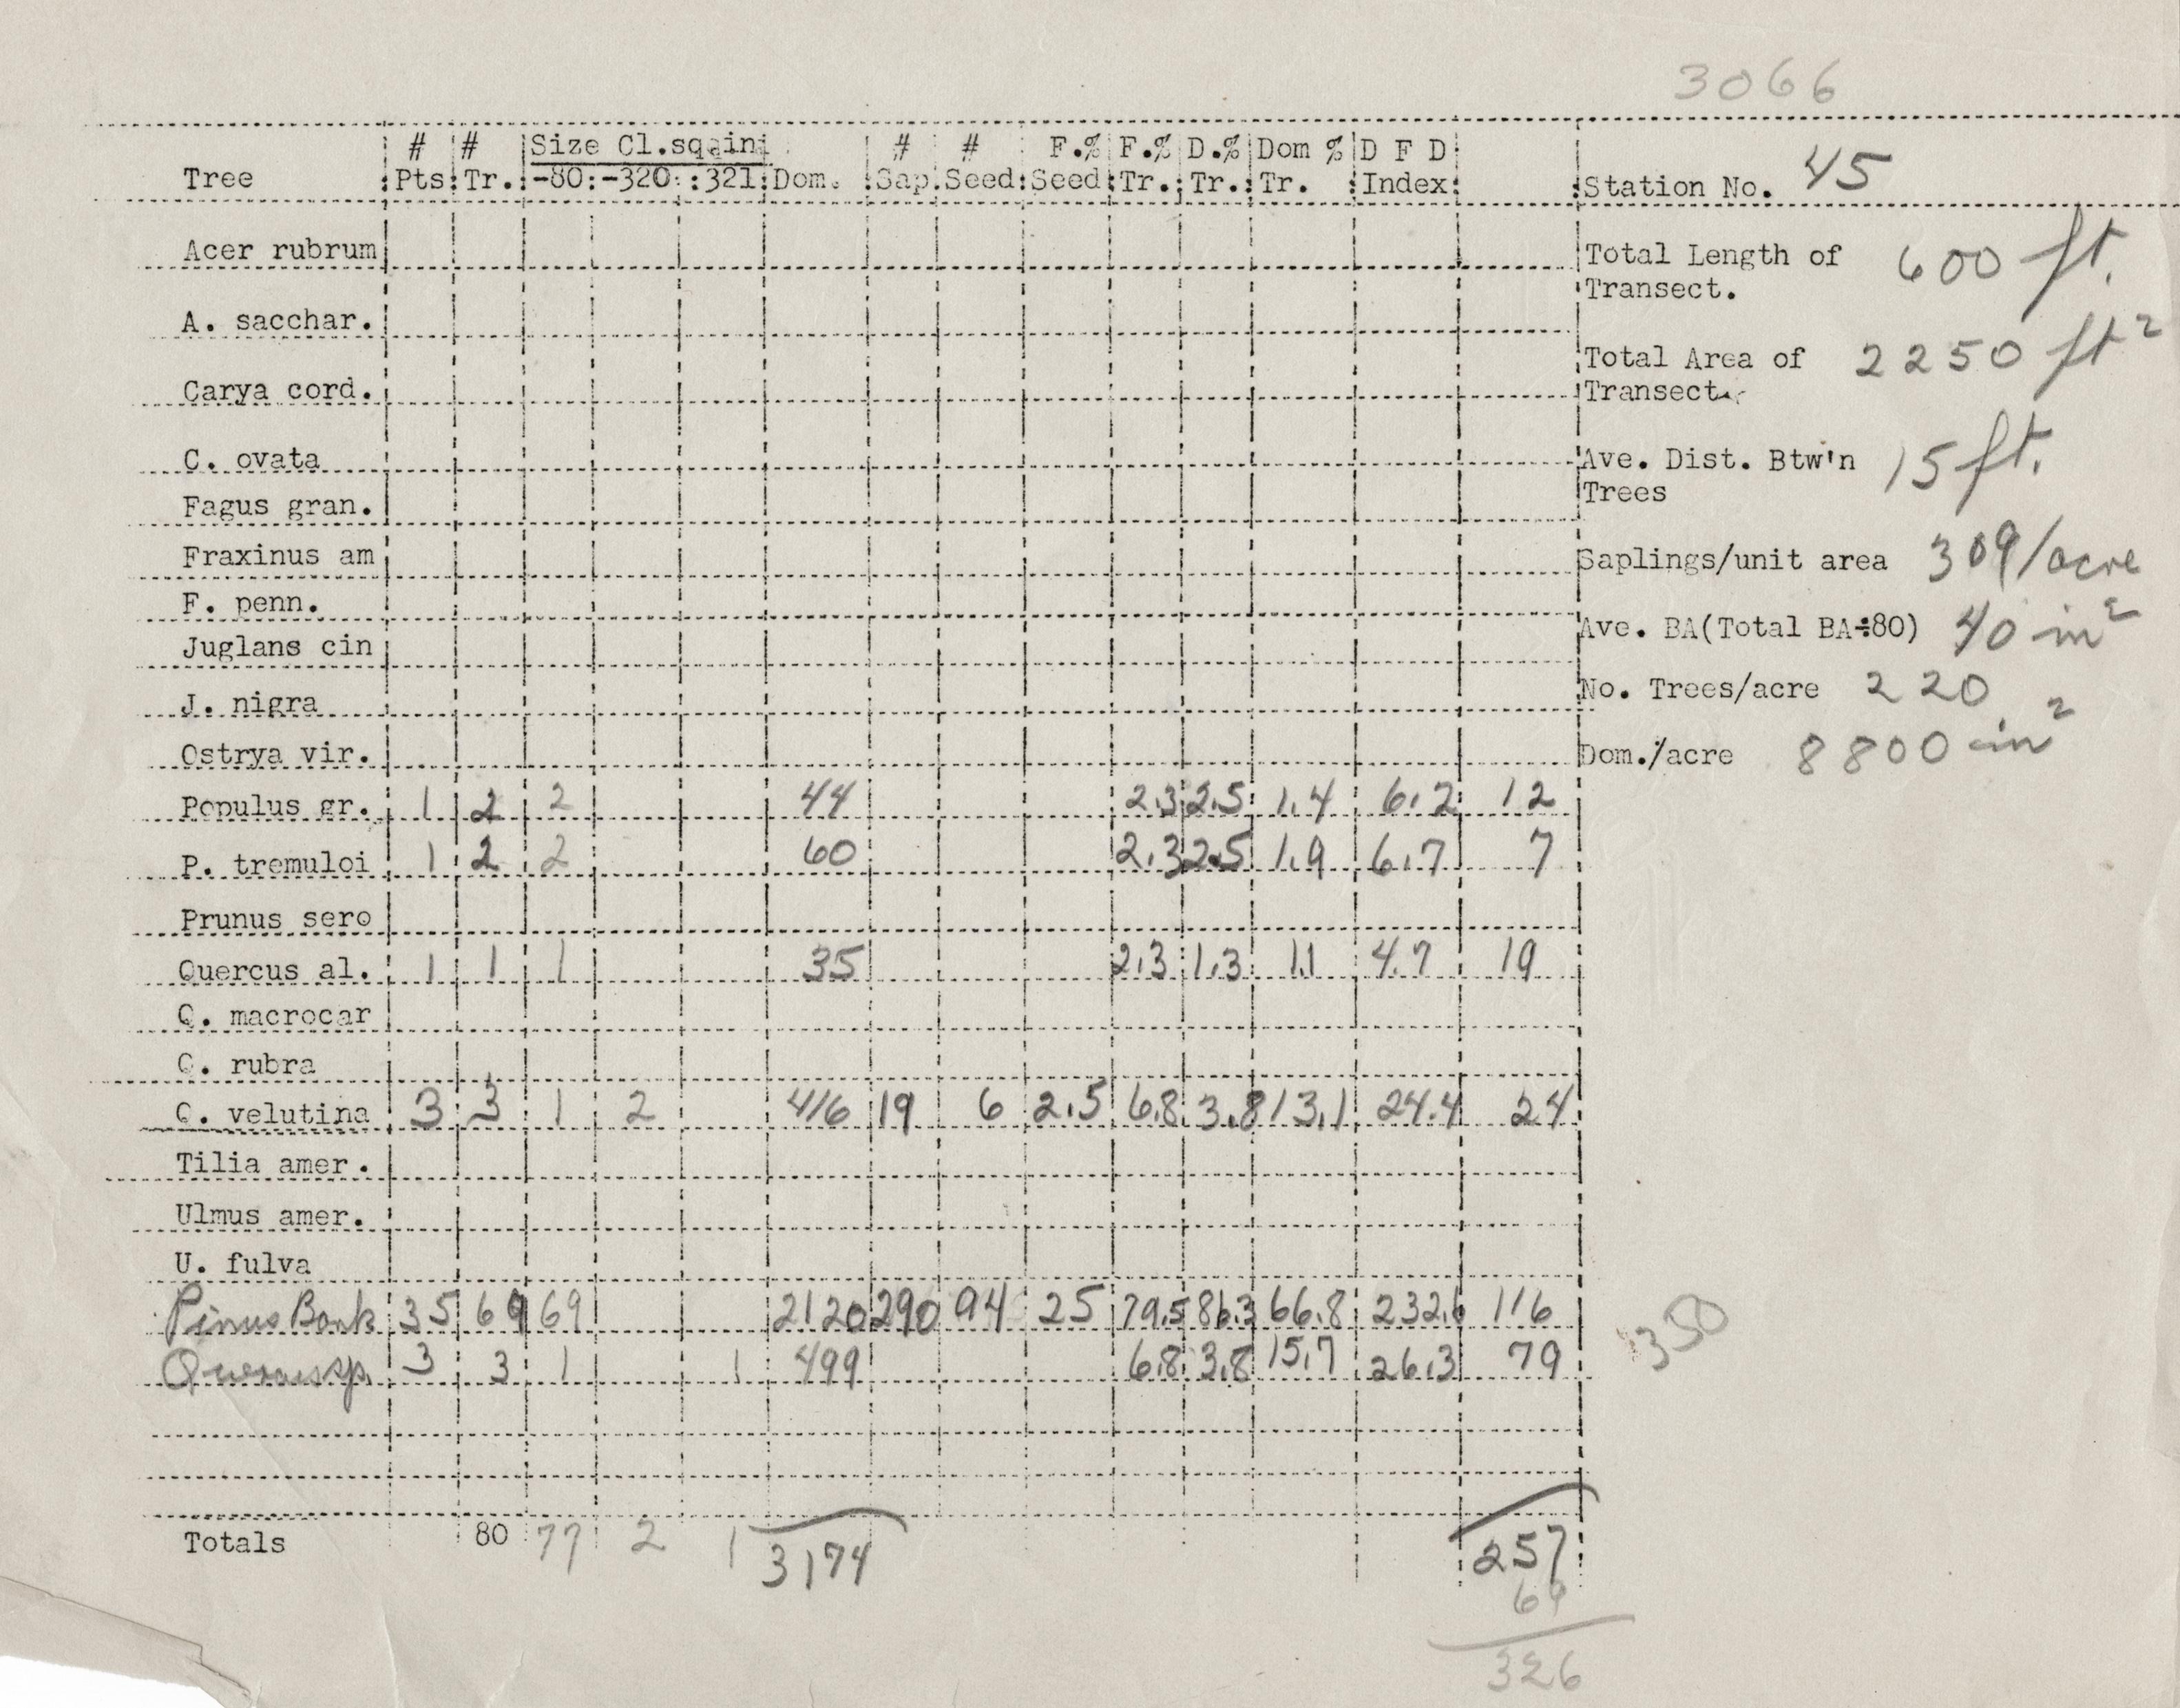 3066
# # Size Cl.sq.in # # F.% F.% D.% Dom % D F D
Tree Pts Tr. -80 -320 321 Dom. Sap. Seed Seed Tr. Tr. Tr. Index Station No. 45
Acer rubrum Total Length of 600 ft.
Transect.
A. sacchar.
Total Area of 2250 ft2
Carya cord. Transect.
C. ovata Ave. Dist. Btw'n 15 ft.
Trees
Fagus gran.
Fraxinus am Saplings/unit area 309/acre
F. penn.
Ave. BA(Total BA÷80) 40 in2
Juglans cin
No. Trees/acre 220
J. nigra
Ostrya vir. Dom./acre 8800 in2
Populus gr. 1 2 2 44 2.3 2.5 1.4 6.2 12
P. tremuloi 1 2 2 60 2.3 2.5 1.9 6.7 7
Prunus sero
Quercus al. 1 1 1 35 2.3 1.3 1.1 4.7 19
Q. macrocar
Q. rubra
Q. velutina 3 3 1 2 416 19 6 2.5 6.8 3.8 13.1 24.4 24
Tilia amer.
Ulmus amer.
U. fulva
Pinus Bank 35 69 69 2120 290 94 25 79.5 86.3 66.8 232.6 116
350
Quercus sp. 3 3 1 1 499 6.8 3.8 15.7 26.3 79
Totals 80 77 2 1 3174 257
69
326